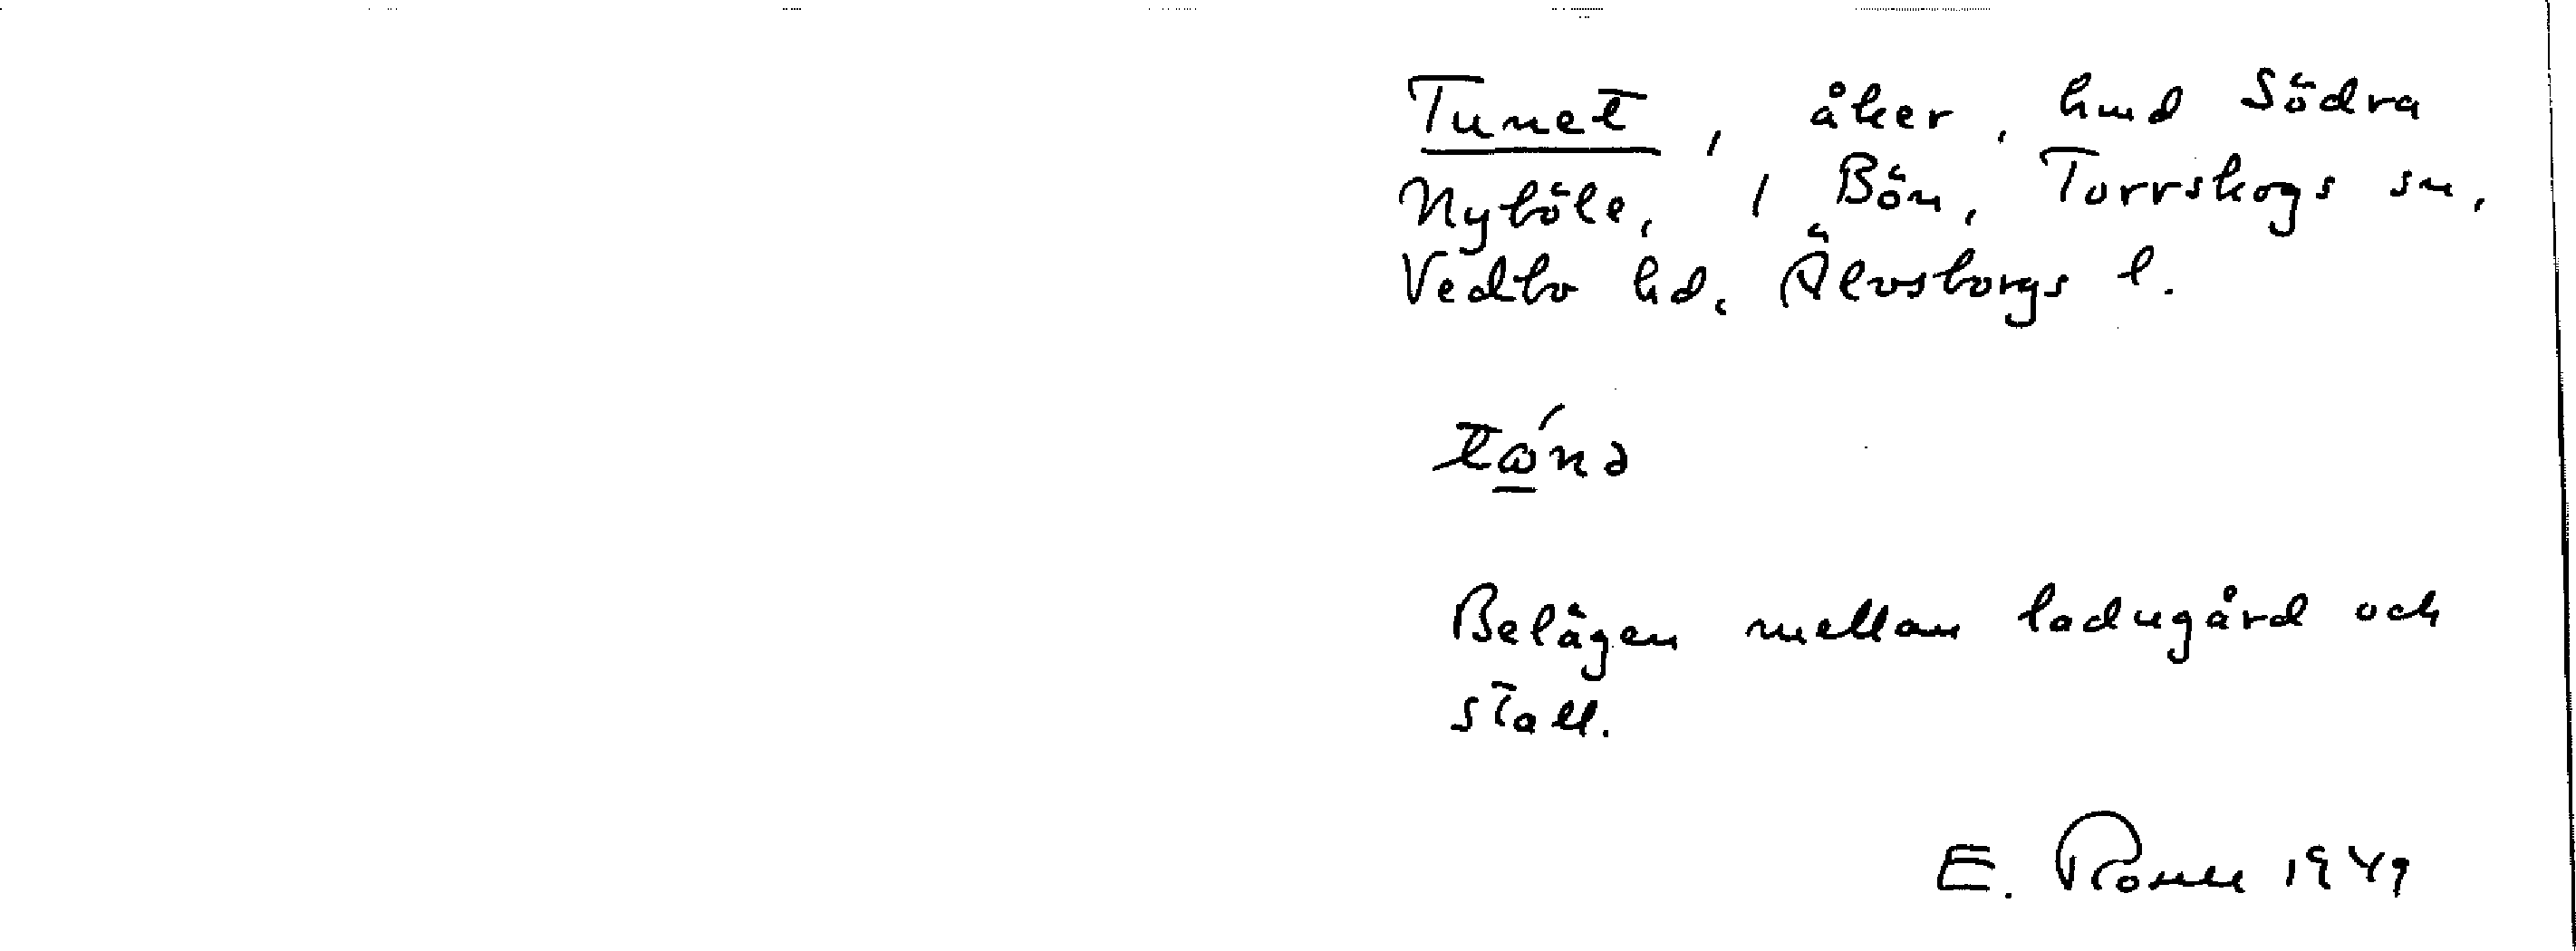 Tunet, åker, hmd Södra
Nyböle, 1 Bön, Torrskogs sn,
Vedbo hd. Älvsborgs l.
Belägen mellan ladugård och
stall.
E. 1949